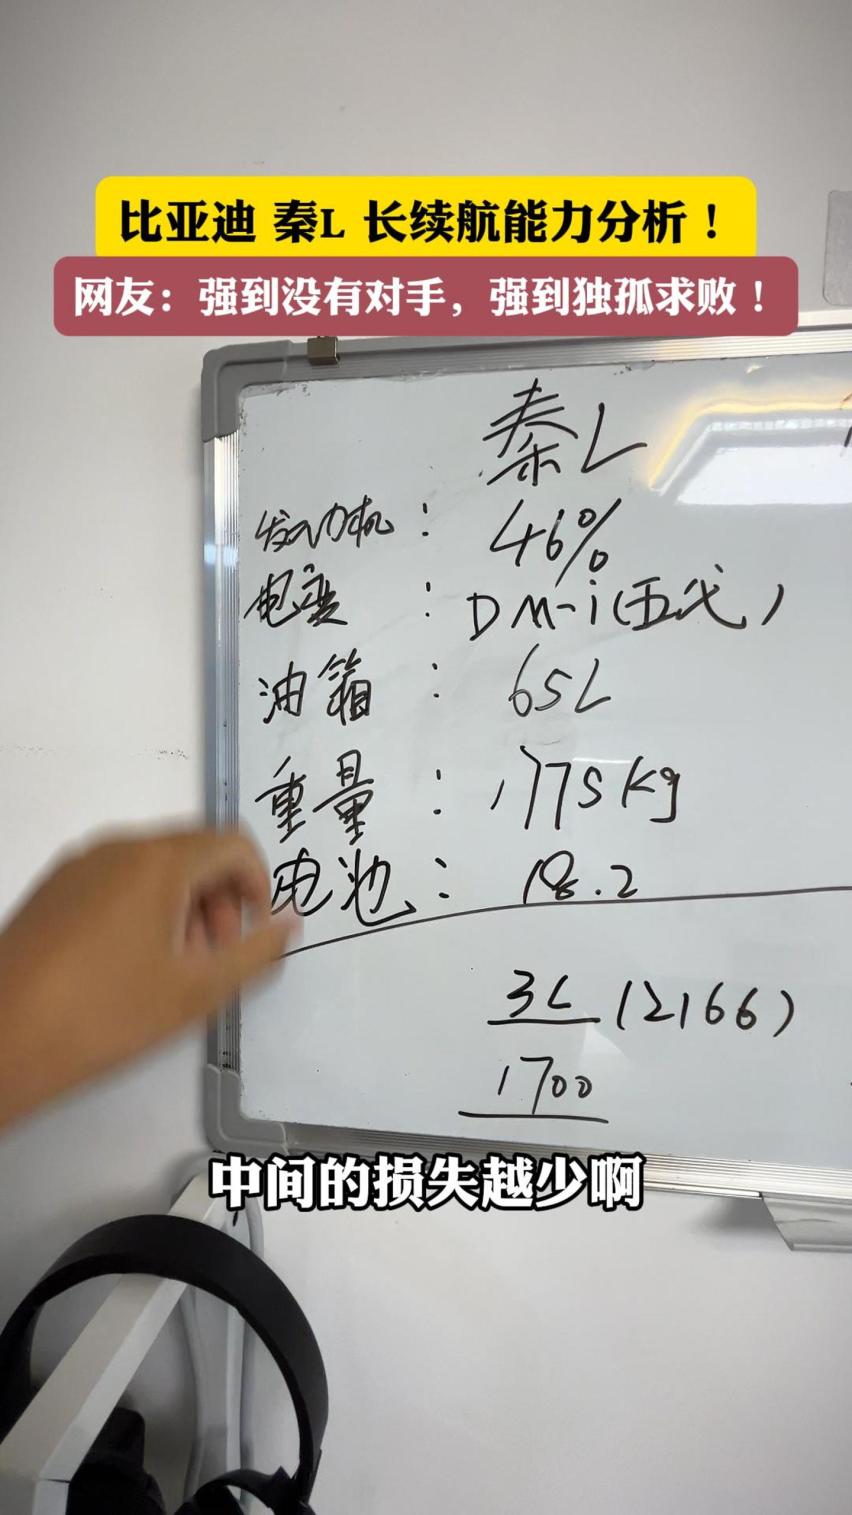 比亚迪 秦L 长续航能力分析！
网友：强到没有对手，强到独孤求败！
秦L
发动机：46%
电混：DM-i(五代)
油箱：65L
重量：1775kg
电池：18.2
3L(2166)
1700
中间的损失越少啊